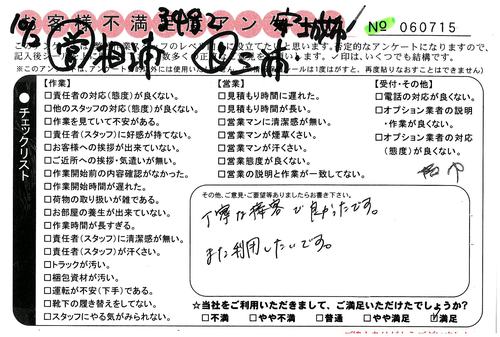 お客様不満 アンケ
安城市
№ 060715
営 相浦 三浦
立てたいと思います。否定的なアンケートになりますので、
記入後シ
数多くの正
い。✓印は、いくつでも結構です。
(※このアンケ
以外には使用いたし
ルは1度がすと、再度貼りなおすことはできません)
●チェックリスト
【作業】
□責任者の対応(態度)が良くない。
□他のスタッフの対応(態度)が良くない。
□作業を見ていて不安がある。
□責任者(スタッフ)に好感が持てない。
□お客様への挨拶が出来ていない。
□ご近所への挨拶・気遣いが無い。
□作業開始前の内容確認がなかった。
□作業開始時間が遅れた。
□荷物の取り扱いが雑である。
□お部屋の養生が出来ていない。
□作業時間が長すぎる。
□責任者(スタッフ)に清潔感が無い。
□責任者(スタッフ)が汗くさい。
□トラックが汚い。
□梱包資材が汚い。
□運転が不安(下手)である。
□靴下の履き替えをしてない。
□スタッフにやる気がみられない。
【営業】
□見積もり時間に遅れた。
□見積もり時間が長い。
□営業マンに清潔感が無い。
□営業マンが煙草くさい。
□営業マンが汗くさい。
□営業態度が良くない。
□営業の説明と作業が一致してない。
【受付・その他】
□電話の対応が良くない。
□オプション業者の説明
・作業が良くない。
□オプション業者の対応
(態度)が良くない。
その他、ご意見・ご要望等ありましたらお書き下さい。
丁寧な接客で良かったです。
また利用したいです。
☆当社をご利用いただきまして、ご満足いただけたでしょうか?
□不満 □やや不満 □普通 □やや満足 □満足